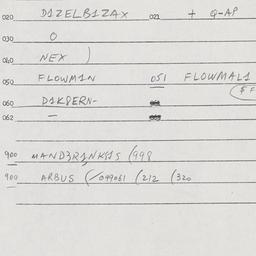 020 D1ZELB1ZAX 021 + Q-AP
030 O
040 NEX )
050 FLOWM1N 051 FLOWMAL1
060 D1K8ERN-
062 -
900 MAND3R1NKS1S (998
900 ARBUS (/099061 (212 (320